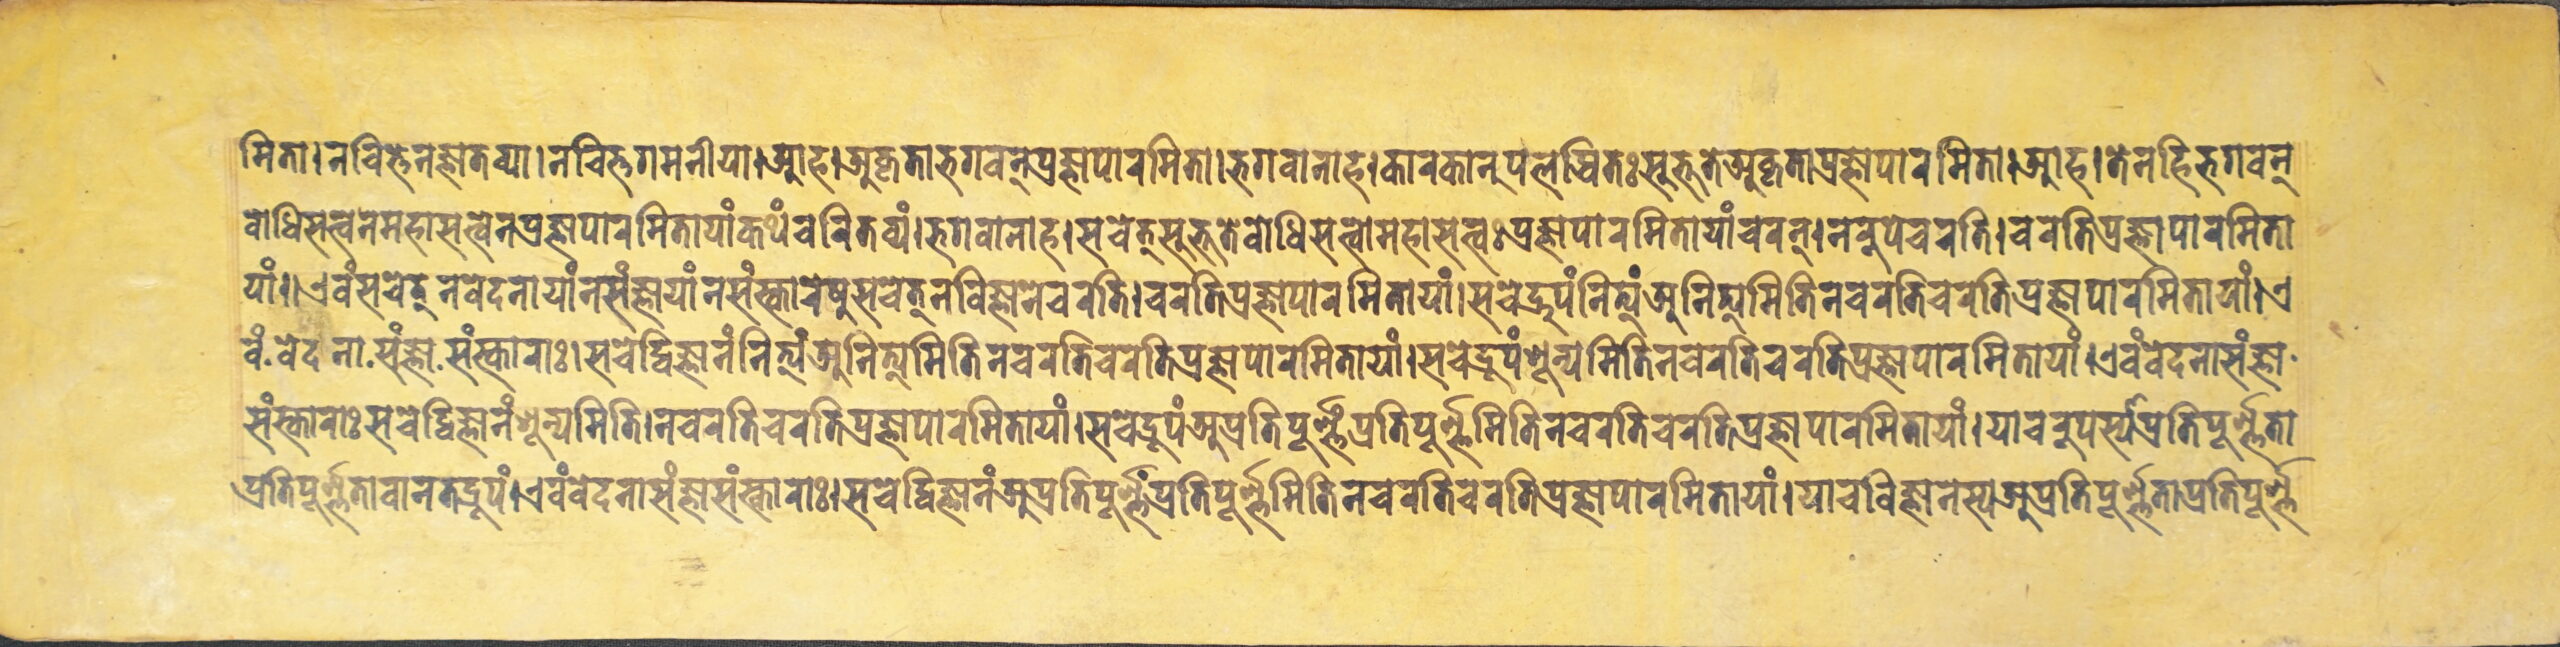 मिता।नचित्तेनज्ञातव्या।नचित्तगमनीया।आह।अकृताभगवन्प्रज्ञापारमिता।भगवानाह।कारकानुपलब्धितःसुभूतेअकृताप्रज्ञापारमिता।आह।तेनहिभगवन्
बोधिसत्त्वेनमहासत्त्वेनप्रज्ञापारमितायांकथंचरितव्यं।भगवानाह।सचेत्सुभूतेबोधिसत्त्वोमहासत्त्वःप्रज्ञापारमितायांचरन्।नरुपेचरति।चरतिप्रज्ञापारमिता
यां।।एवंसचेत्नवेदनायांनसंज्ञायांनसंस्कारेषुसचेत्नविज्ञानेचरति।चरतिप्रज्ञापारमितायां।सचेद्रुपंनित्यंअनित्यमितिनचरतिचरतिप्रज्ञापारमितायां।ए
वं.वेदना.संज्ञा.संस्काराः।सचेद्विज्ञानंनित्यंअनित्यमितिनचरतिचरतिप्रज्ञापारमितायां।सचेद्रूपंशून्यमितिनचरतिचरतिप्रज्ञापारमितायां।एवंवेदनासंज्ञा.
संस्काराःसचेद्विज्ञानंशून्यमिति।नचरतिचरतिप्रज्ञापारमितायां।सचेद्रूपंअप्रतिपूर्ण्णंप्रतिपूर्ण्णमितिनचरतिचरतिप्रज्ञापारमितायां।याचरुपस्याप्रतिपूर्ण्णता
प्रतिपूर्ण्णतावानतद्रूपं।एवंवेदनासंज्ञासंस्काराः।सचेद्विज्ञानंअप्रतिपूर्ण्णंप्रतिपूर्ण्णमितिनचरतिचरतिप्रज्ञापारमितायां।याचविज्ञानस्यअप्रतिपूर्ण्णताप्रतिपूर्ण्ण